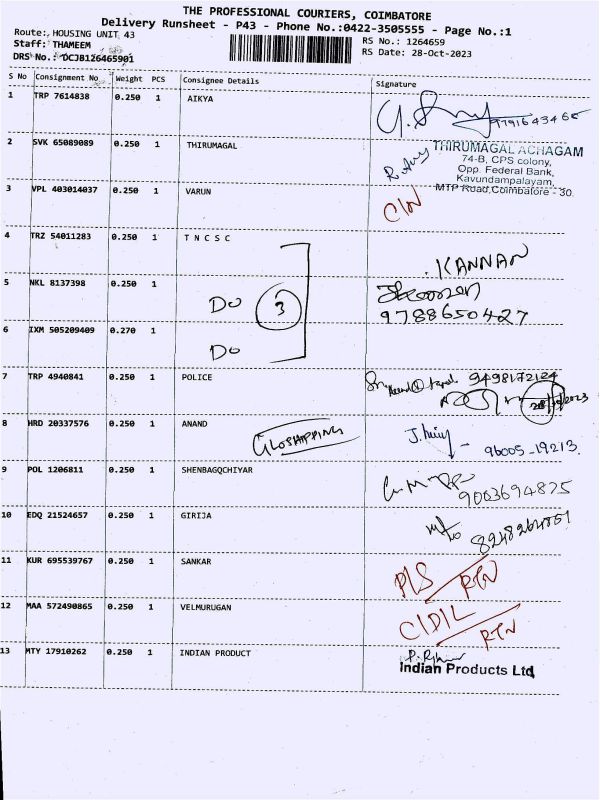 THE PROFESSIONAL COURIERS, COIMBATORE
Delivery Runsheet - P43 - Phone No.:0422-3505555 - Page No.:1
Route: HOUSING UNIT 43
Staff: THAMEEM
DRS No.: DCJB126465901
RS No.: 1264659
RS Date: 28-Oct-2023
S No Consignment No Weight PCS Consignee Details Signature
1 TRP 7614838 0.250 1 AIKYA
9791643465
2 SVK 65089089 0.250 1 THIRUMAGAL
THIRUMAGAL ACHAGAM
74-B, CPS colony,
Opp. Federal Bank,
Kavundampalayam,
MTP Road, Coimbatore - 30.
3 VPL 403014037 0.250 1 VARUN
4 TRZ 54011283 0.250 1 T N C S C
KANNAN
5 NKL 8137398 0.250 1
DO 3
9788650427
6 IXM 505209409 0.270 1
DO
7 TRP 4940841 0.250 1 POLICE
9498172124
8 HRD 20337576 0.250 1 ANAND
GLOSHIPPING
96005-19213
9 POL 1206811 0.250 1 SHENBAGQCHIYAR
9003694825
10 EDQ 21524657 0.250 1 GIRIJA
11 KUR 695539767 0.250 1 SANKAR
RTN
12 MAA 572490865 0.250 1 VELMURUGAN
RTN
13 MTY 17910262 0.250 1 INDIAN PRODUCT
Indian Products Ltd